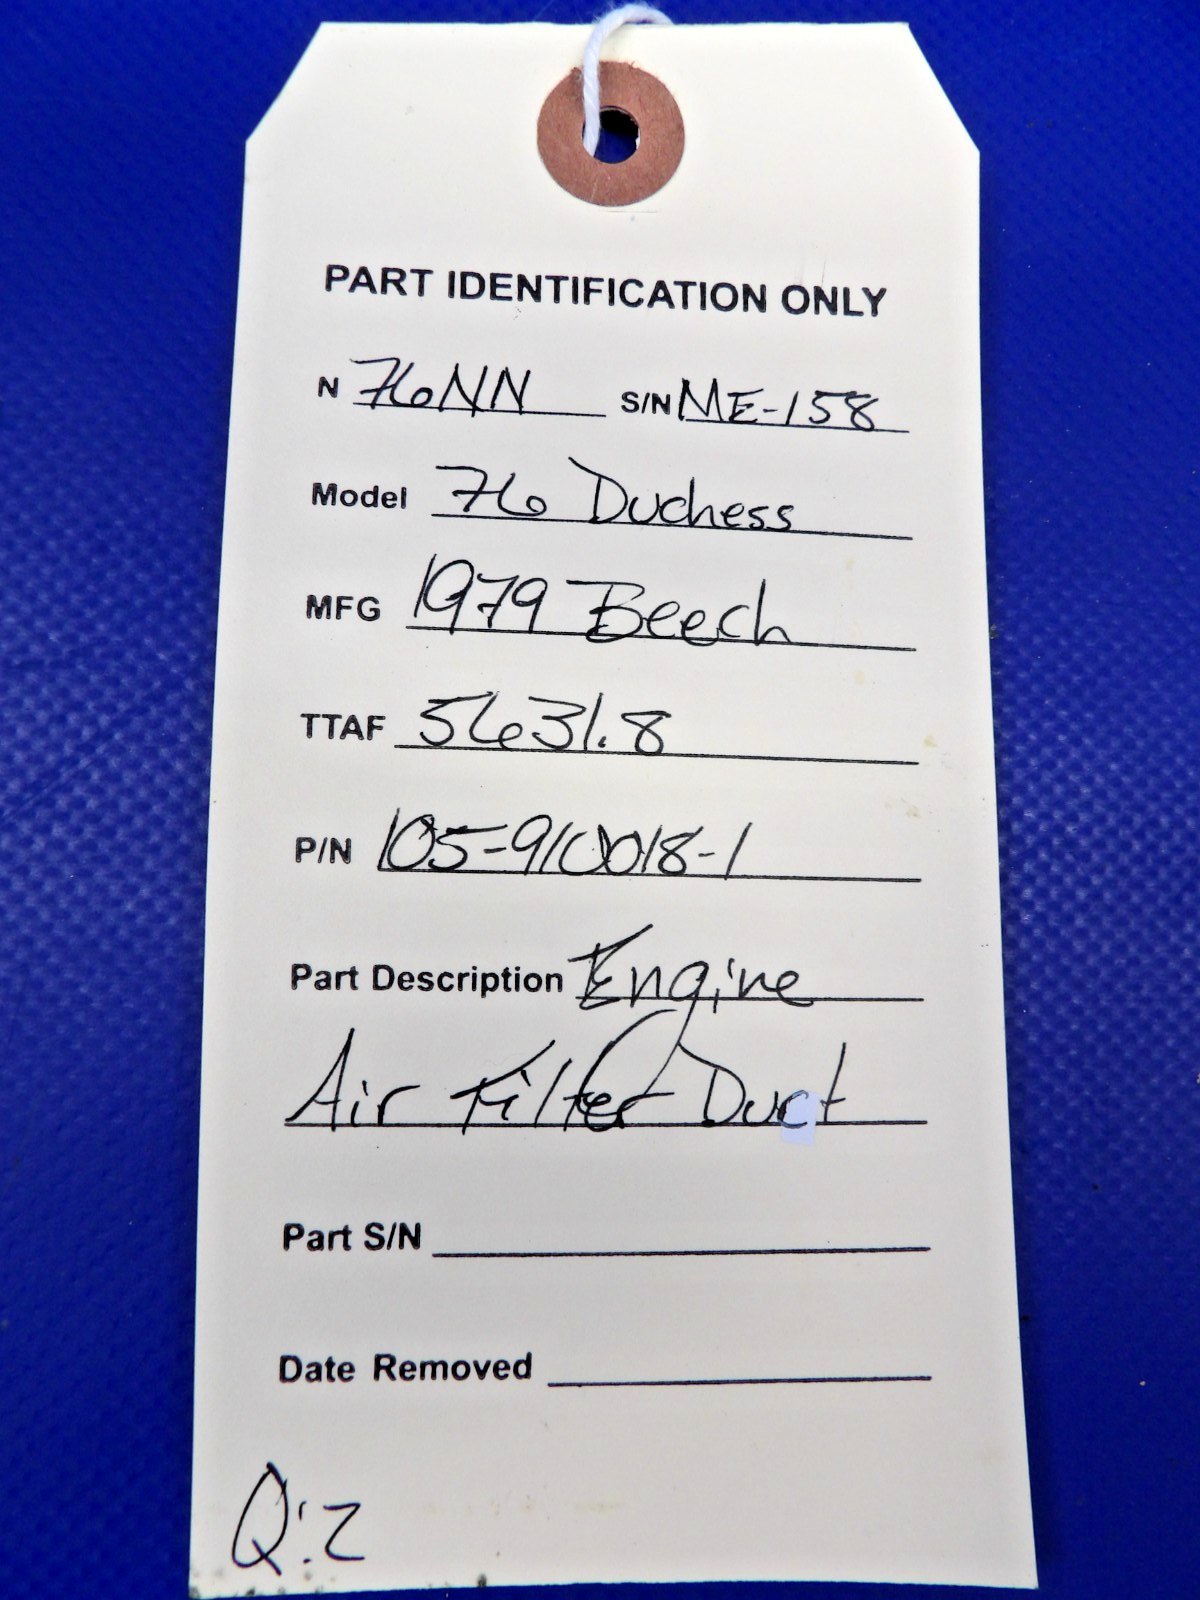 PART IDENTIFICATION ONLY
N 76NN S/N ME-158
Model 76 Duchess
MFG 1979 Beech
TTAF 5631.8
P/N 105-910018-1
Part Description Engine
Air Filter Duct
Part S/N
Date Removed
Q:2